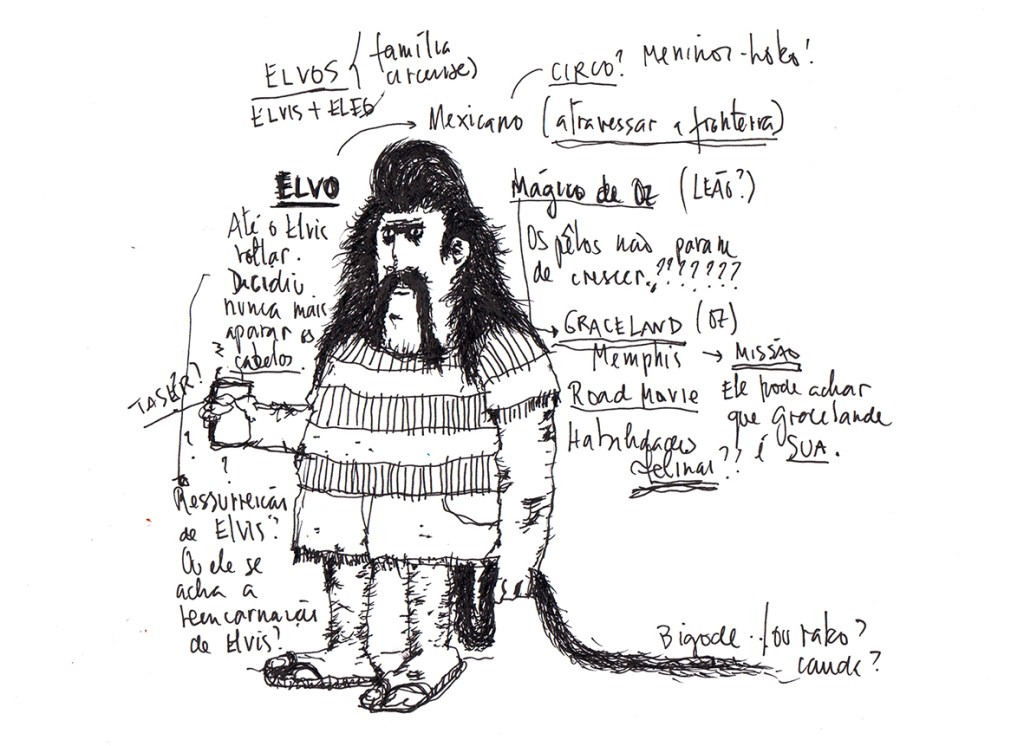 ELVOS { família
circense)
ELVIS + ELEO
CIRCO? Meninos-lobo!
Mexicano (atravessar a fronteira)
ELVO
Até o Elvis
voltar.
Decidiu
nunca mais
aparar os
cabelos.
Mágico de OZ (LEÃO?)
Os pêlos não param
de crescer.???????
GRACELAND (OZ)
Memphis → MISSÃO
Road Movie
Ele pode achar
que Gracelande
é SUA.
Habilidades
felinas??
TASER?
?
?
?
Ressurreição
de ELVIS?
Ou ele se
acha a
reencarnação
de Elvis?
Bigode ../ou rabo?
cauda?